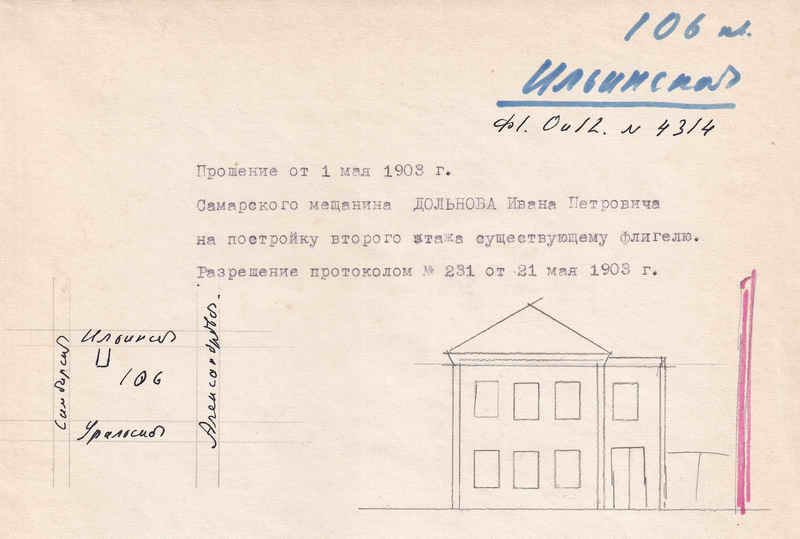 106 кв.
Ильинская
ф1. Оп12. № 4314
Прошение от 1 мая 1903 г.
Самарского мещанина ДОЛЬНОВА Ивана Петровича
на постройку второго этажа существующему флигелю.
Разрешение протоколом № 231 от 21 мая 1903 г.
Ильинская
106
Уральская
Симбирская
Александровская